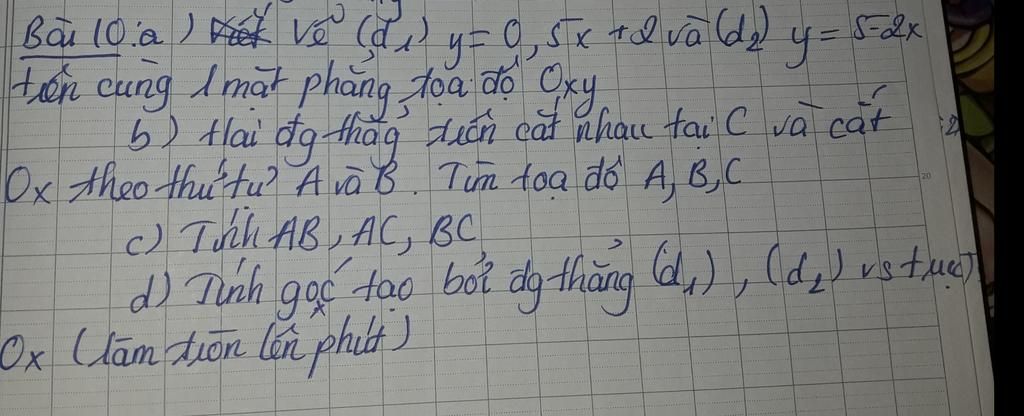 Bài 10. a) Vẽ (d₁) y = 0,5x + 2 và (d₂) y = 5 - 2x
trên cùng 1 mặt phẳng tọa độ Oxy
b) Hai đg thẳng trên cắt nhau tại C và cắt
Ox theo thứ tự A và B. Tìm tọa độ A, B, C
c) Tính AB, AC, BC
d) Tính góc tạo bởi đg thẳng (d₁), (d₂) vs trục
Ox (làm tròn lên phút)